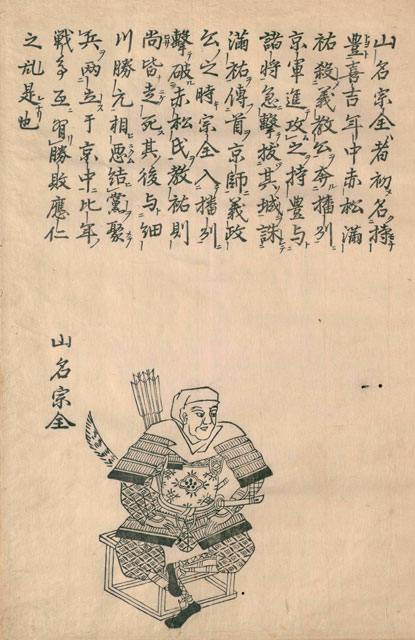 山名宗全者初名持
豊喜吉年中赤松満
祐殺義教公奔播州
京軍進攻之持豊与
諸将急撃抜其城誅
満祐傳首京師義政
公之時宗全入播州
撃破赤松氏教祐則
尚皆走死其後与細
川勝元相悪結黨聚
兵両立于京中比年
戦争互有勝敗應仁
之乱是也
山名宗全